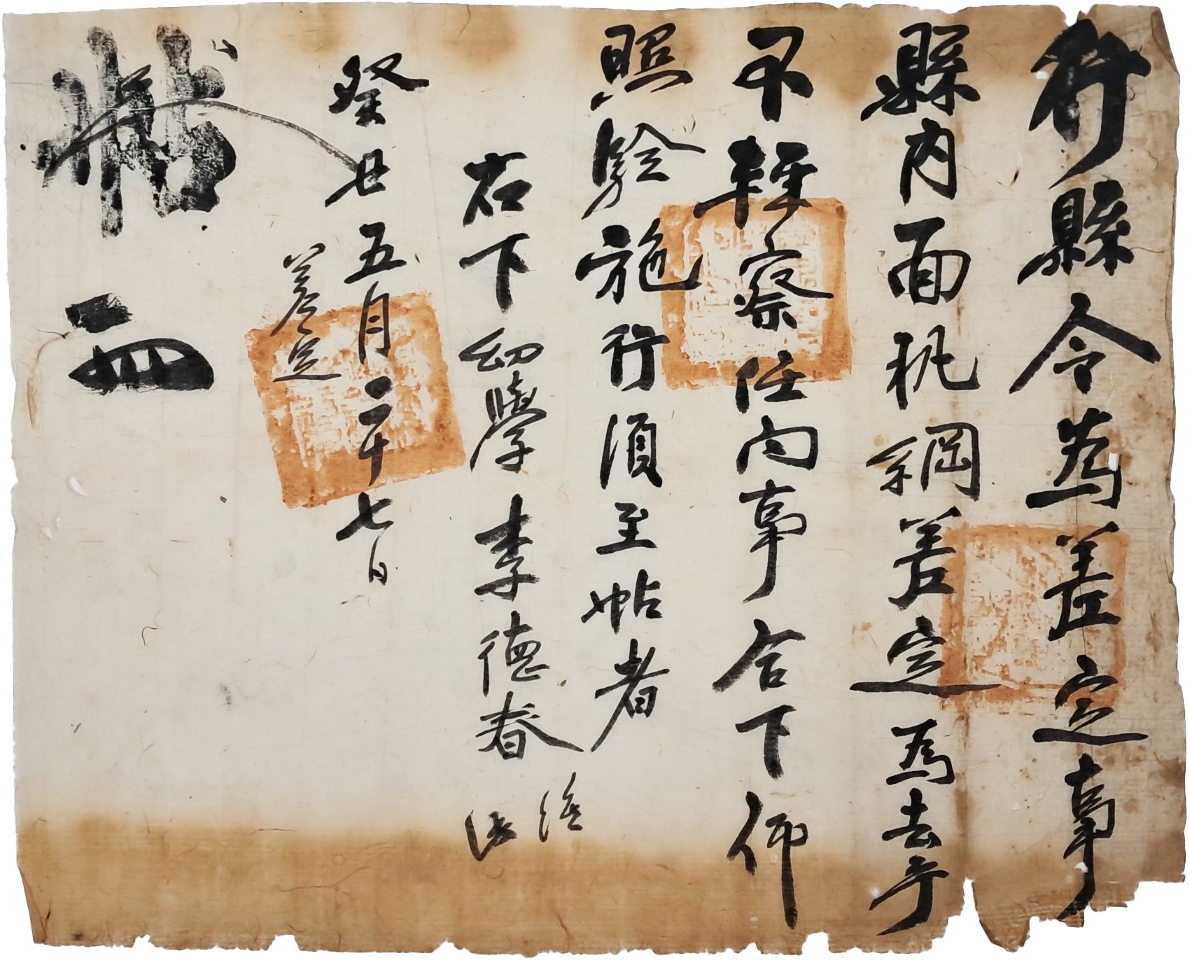 行縣令爲差定事
縣內面執綱差定爲去乎
不輕察任向事合下仰
照驗施行須至帖者
右下幼學李德春
癸丑五月二十七日
差定
帖